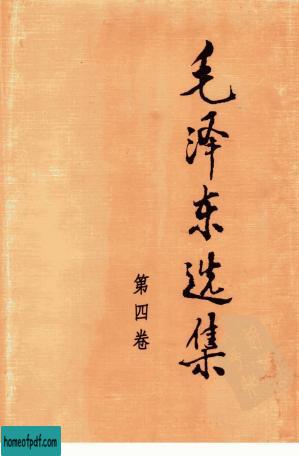 毛泽东选集
第四卷
homeofpdf.com